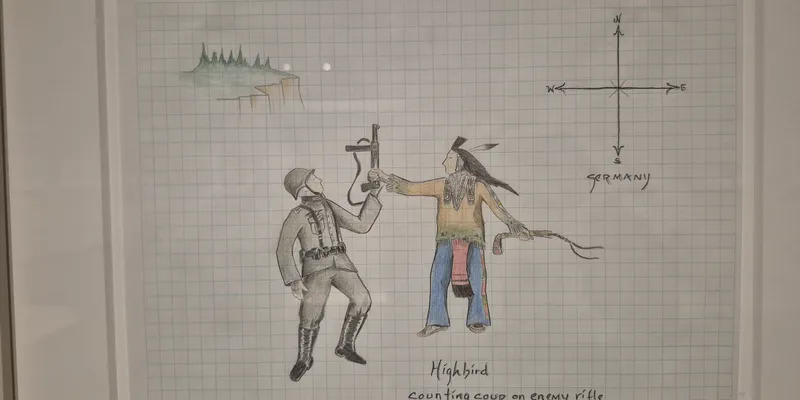 N
W E
S
GERMANY
Highbird
counting coup on enemy rifle